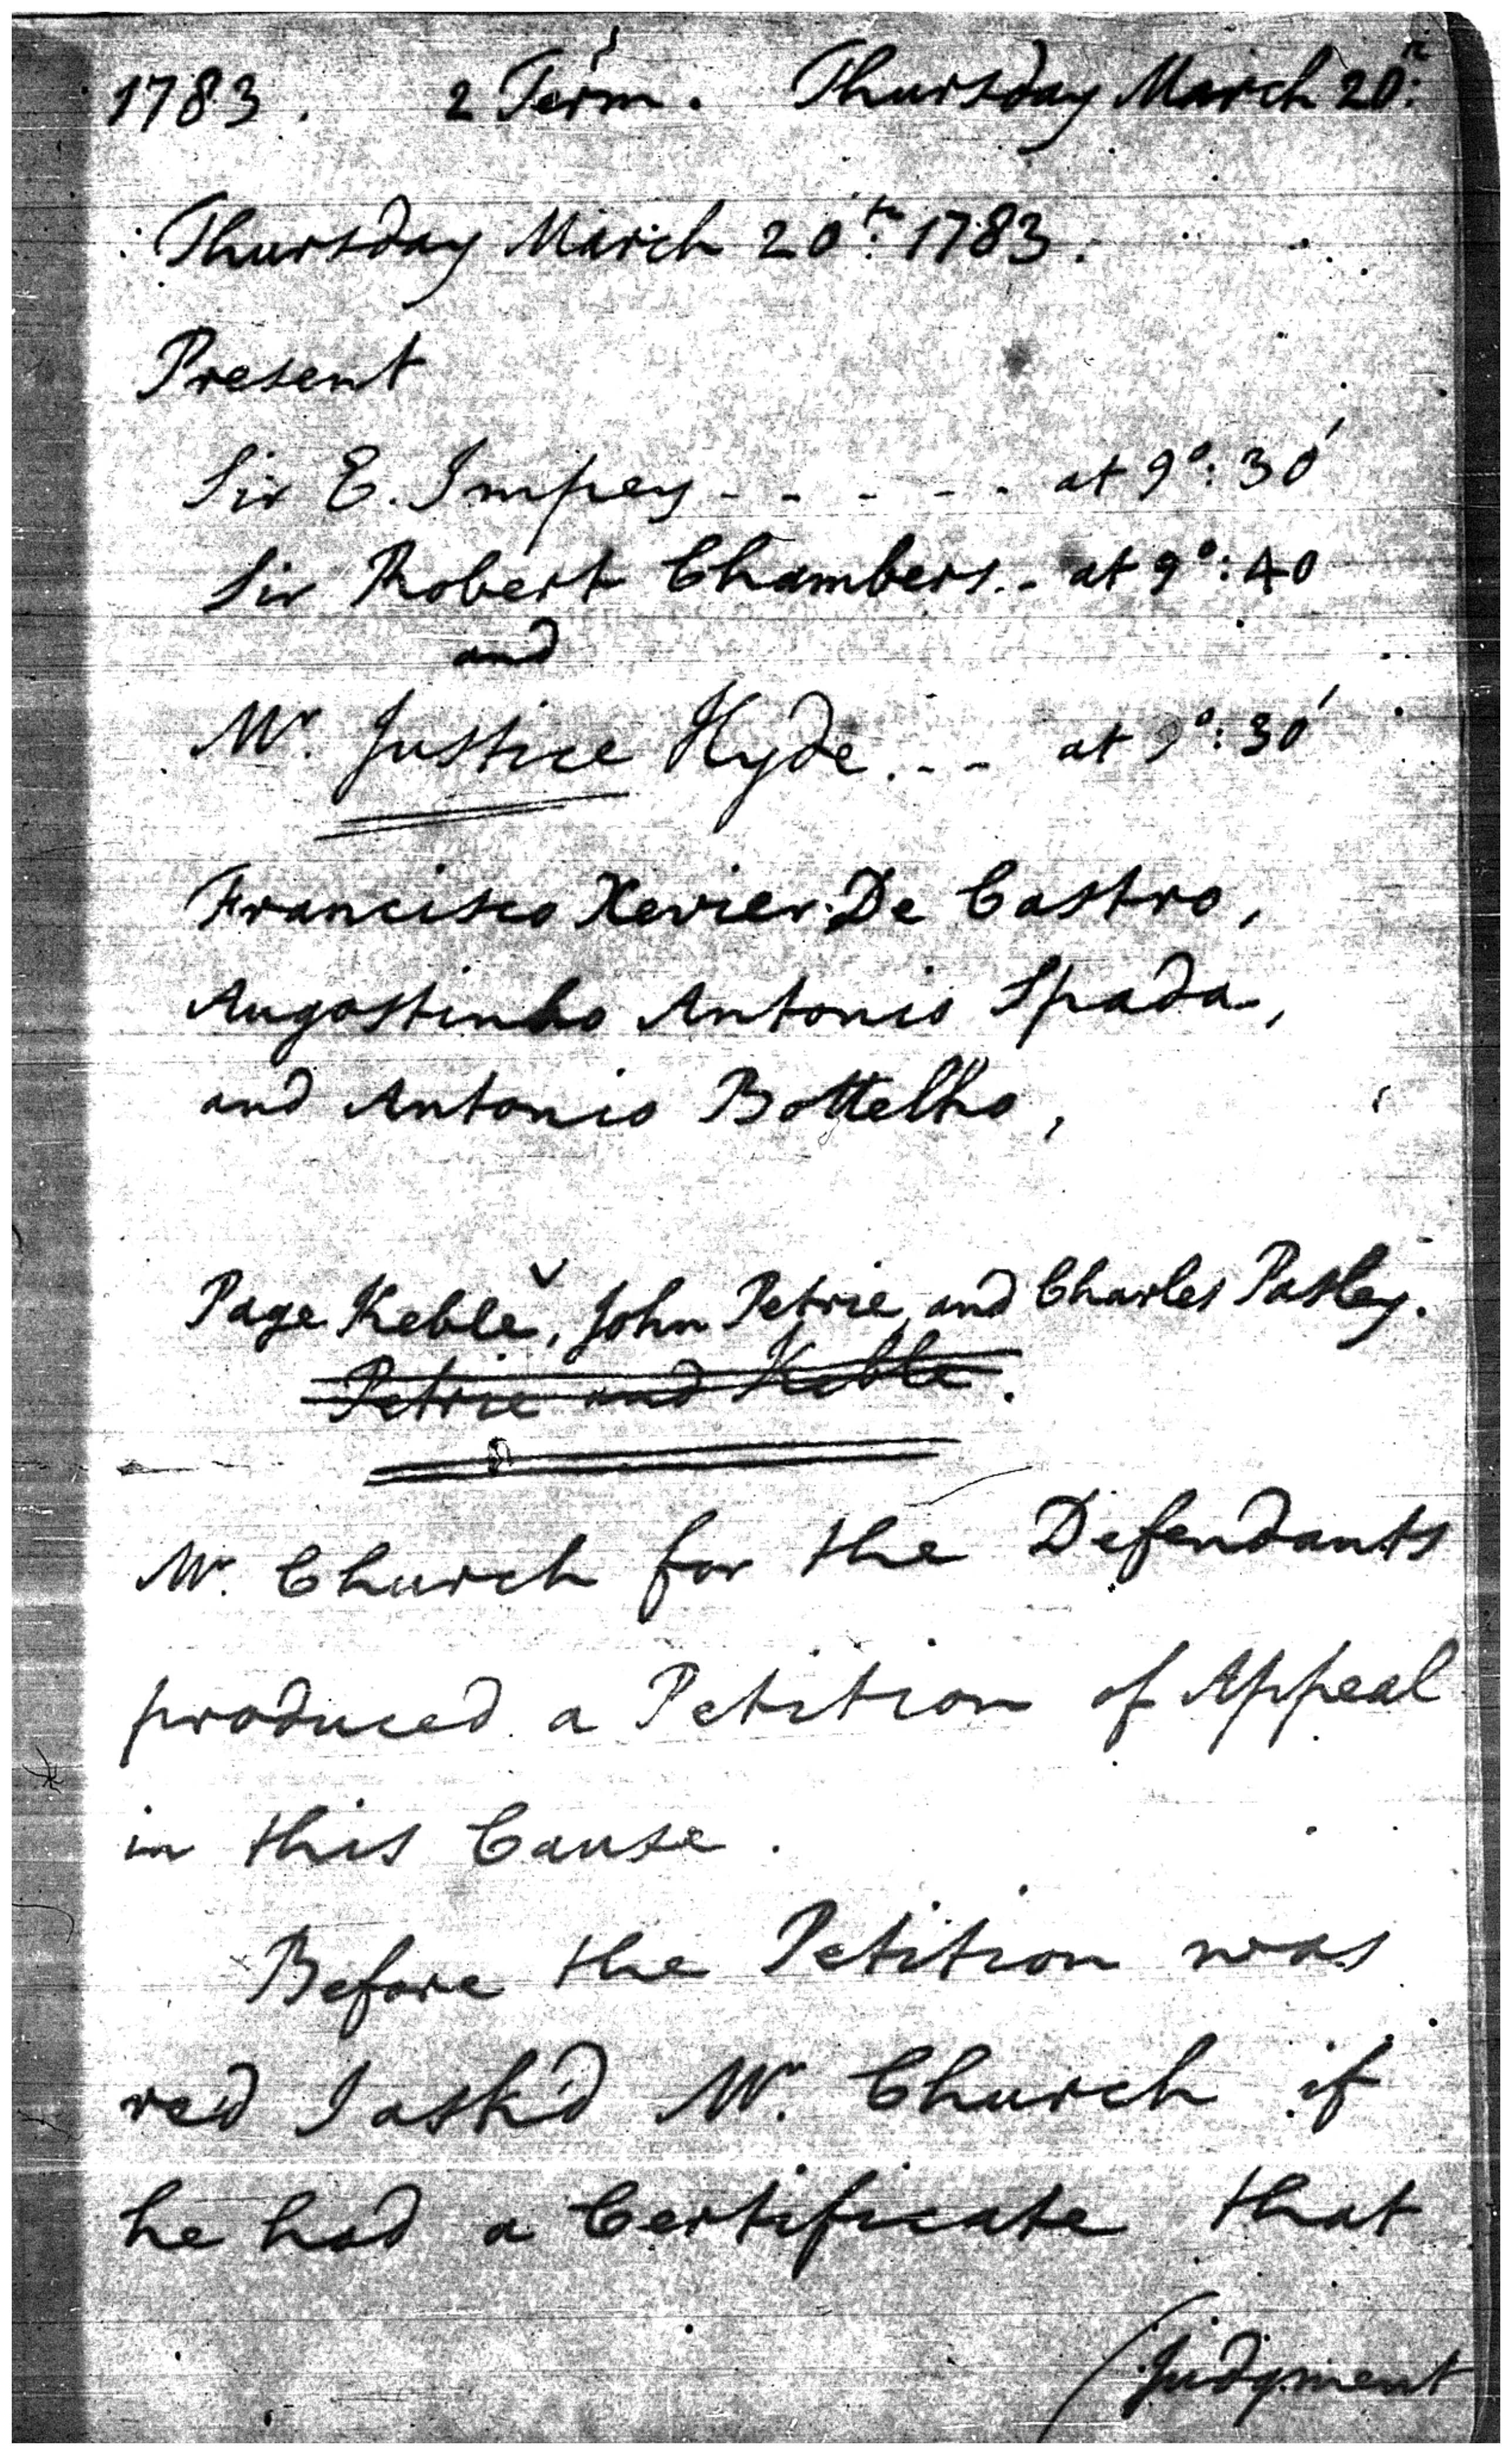 1783. 2 Term. Thursday March 20th.
Thursday March 20th. 1783.
Present
Sir E. Impey - - - - - at 9°: 30'
Sir Robert Chambers. - at 9°: 40
and
Mr. Justice Hyde. - - at 9°: 30'
Francisco Xevier De Castro,
Augostinho Antonio Spada,
and Antonio Bottelho,
Page Keble, John Petrie and Charles Pasley.
Petrie and Keble.
Mr. Church for the Defendants
produced a Petition of Appeal
in this Cause.
Before the Petition was
red I ask'd Mr. Church if
he had a Certificate that
(Judgment